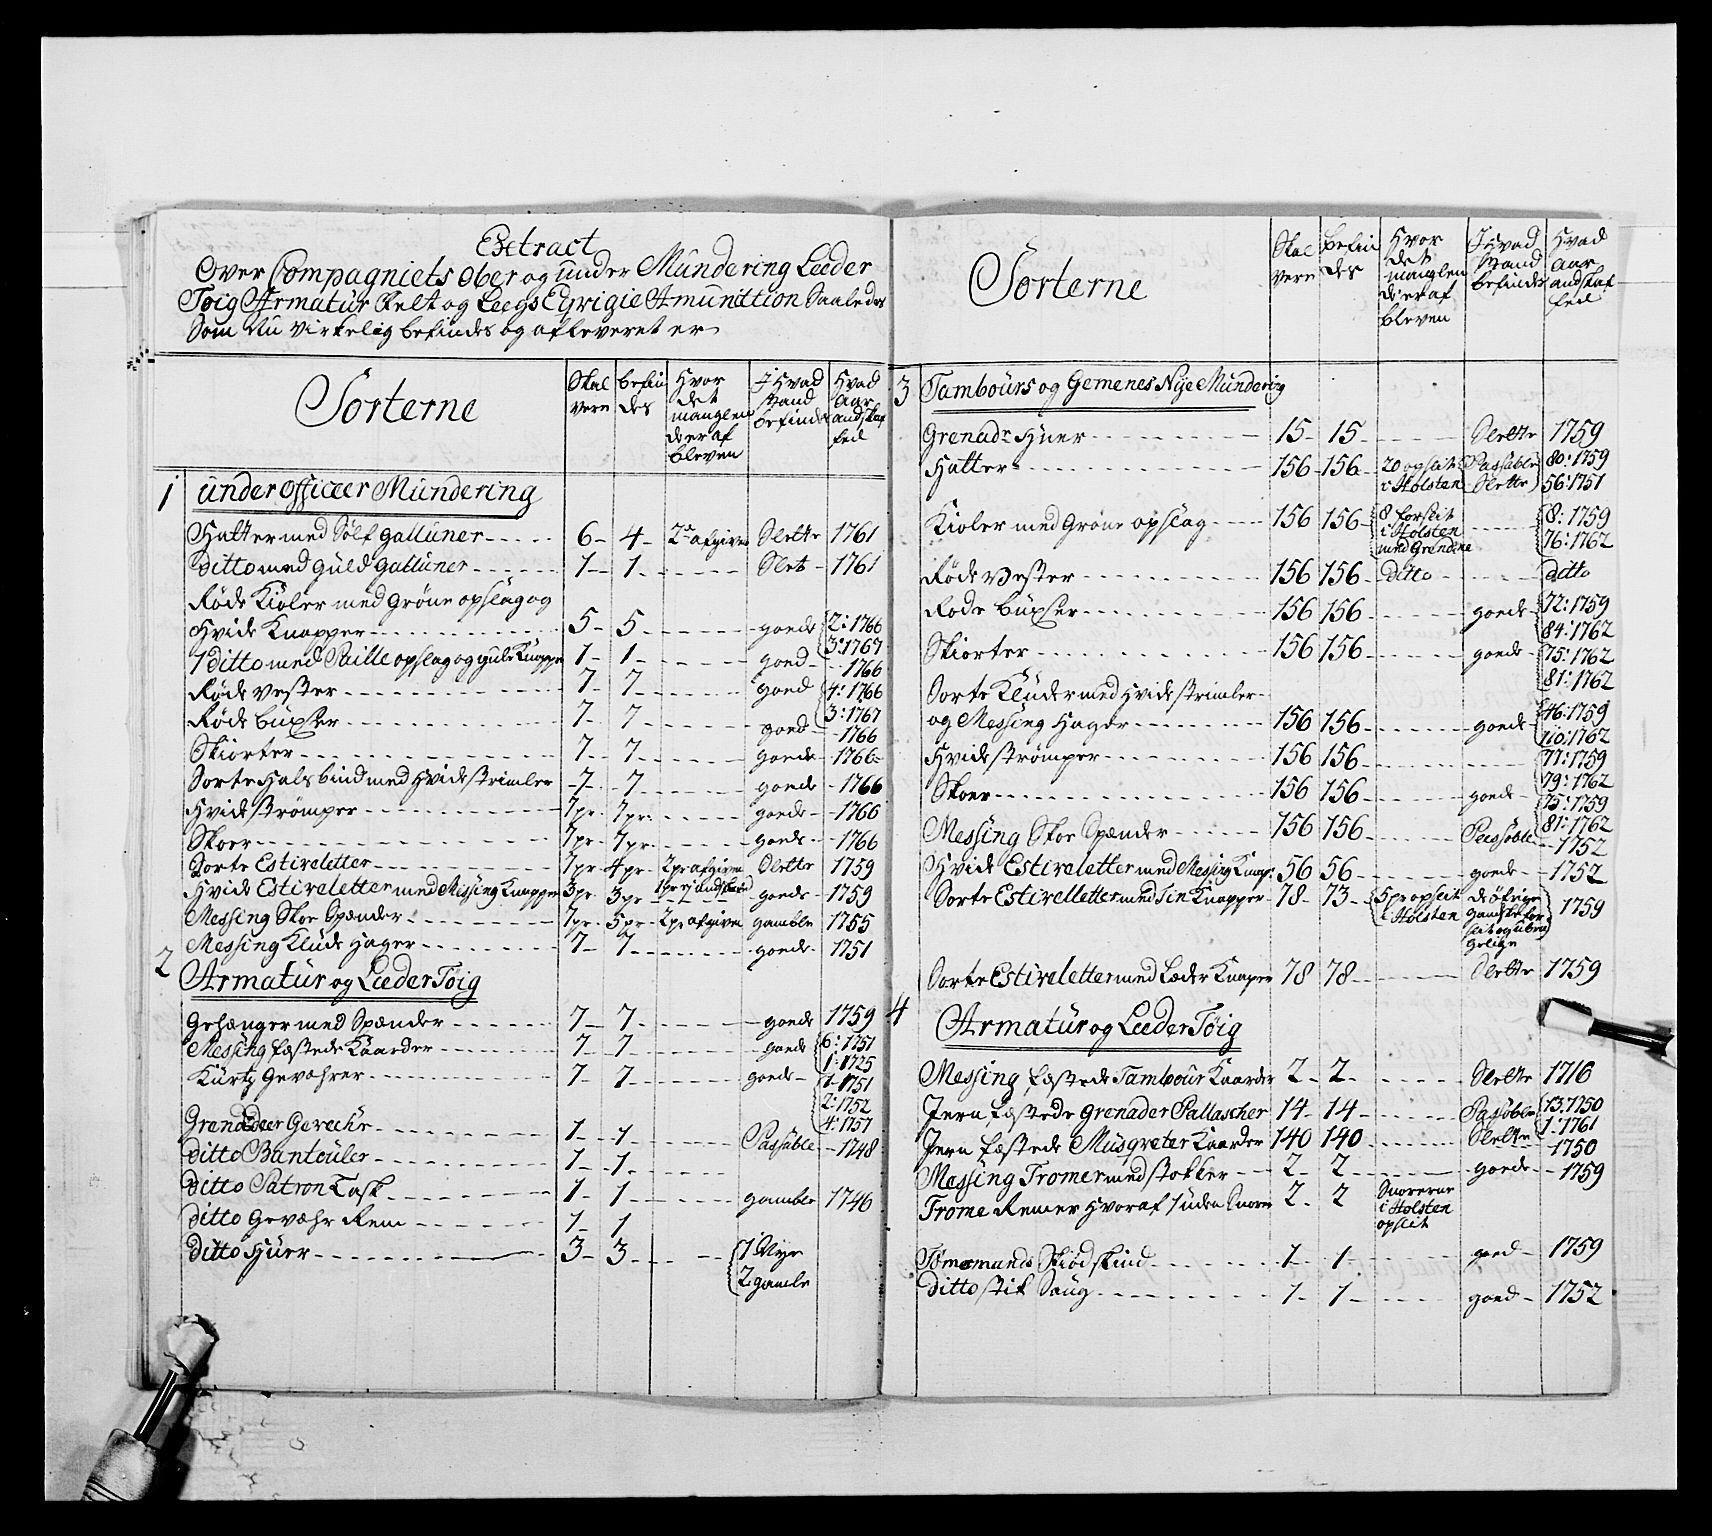 Extract
Over Compagniets Ober og under Mundering Leeder
Tøig Armatur Felt og Leegs Eqvigie Amunittion Saaledes
Som Nu virkelig befindes og afleveret er
Sorterne
Skal være
befindes
Hvor det manglende er af bleven
I Hvad Stand befindes
Hvad Aar andskaffed
1 under officeer Mundering
Hatter med Sølf galluner 6 4 2 afgiven Slette 1761
ditto med Guld Galluner 1 1 Slet 1761
Røde Kioler med Grøne opslag og
Hvide Knapper 5 5 goede 2: 1766
3: 1767
1 ditto med Paille opslag og gule Knapper 1 1 goed 1766
Røde Vester 7 7 goed 4: 1766
3: 1767
Røde buxser 7 7 goed 1766
Skiorter 7 7 goede 1766
Sorte Hals bind med Hvide strimler 7 7 goede 1766
Hvide strømper 7 pr 7 pr goede 1766
Skoer 7 pr 7 pr goede 1766
Sorte Estiveletter 7 pr 4 pr 2 pr afgiven Slette 1759
1 pr ej andskaffed
Hvide Estiveletter med Messing Knapper 3 pr 3 pr goede 1759
Messing Skoe Spænder 7 pr 5 pr 2 pr afgiven gamble 1755
Messing Klude Hager 7 7 goede 1751
2 Armatur og Leeder Tøig
Gehænger med Spænder 7 7 goede 1759
Messing fæstede Kaarder 7 7 goede 6: 1751
1: 1725
Kurtz Gevæhrer 7 7 goede 1 1751
2: 1752
4: 1757
Grenadeer Gevehr 1 1 Passable 1748
ditto Bantouler 1 1
ditto Patron Task 1 1 gamble 1746
ditto Gevæhr Rem 1 1
ditto Huer 3 3 1 Nye
2 gamle
Sorterne
Skal være
befindes
Hvor det manglende er af bleven
I Hvad Stand befindes
Hvad Aar andskaffed
3 Tambours og Gemenes Nye Mundering
Grenadr Huer 15 15 Slette 1759
Hatter 156 156 20 opslit Passable 80: 1759
i Holsten Slette 56: 1751
Kioler med Grøne opslag 156 156 8 forslit 8: 1759
i Holsten 76: 1762
med Grendene
Røde Vester 156 156 ditto ditto
Røde buxser 156 156 goede 72: 1759
84: 1762
Skiorter 156 156 goede 75: 1762
81: 1762
Sorte Kluder med Hvide strimler
og Messing Hager 156 156 goede 46: 1759
110: 1762
Hvide strømper 156 156 77: 1759
79: 1762
Skoer 156 156 goede 75: 1759
81: 1762
Messing Skoe Spænder 156 156 Passable 1752
Hvide Estiveletter med Messing Knap: 56 56 goede 1752
Sorte Estivelletter med Tin Knapper 78 73 5 pr opslit de øfrige 1759
i Holsten ganske for
slit og ubru
gelige
Sorte Estiveletter med Læder Knaper 78 78 Slette 1759
4 Armatur og Leeder Tøig
Messing fæstede Tambour Kaarder 2 2 Slette 1716
Jern fæstede Grenader Pallascher 14 14 Pasable 13: 1750
1: 1761
Jern fæstede Musqveter Kaarder 140 140 Slette 1750
Messing Tromer med stokker 2 2 goede 1759
Trome Remer Hvoraf 1 uden Snore 2 2 Snorerne
i Holsten
opslit
Tømemands Skiødskind 1 1 goed 1759
ditto stik Saug 1 1 goed 1752